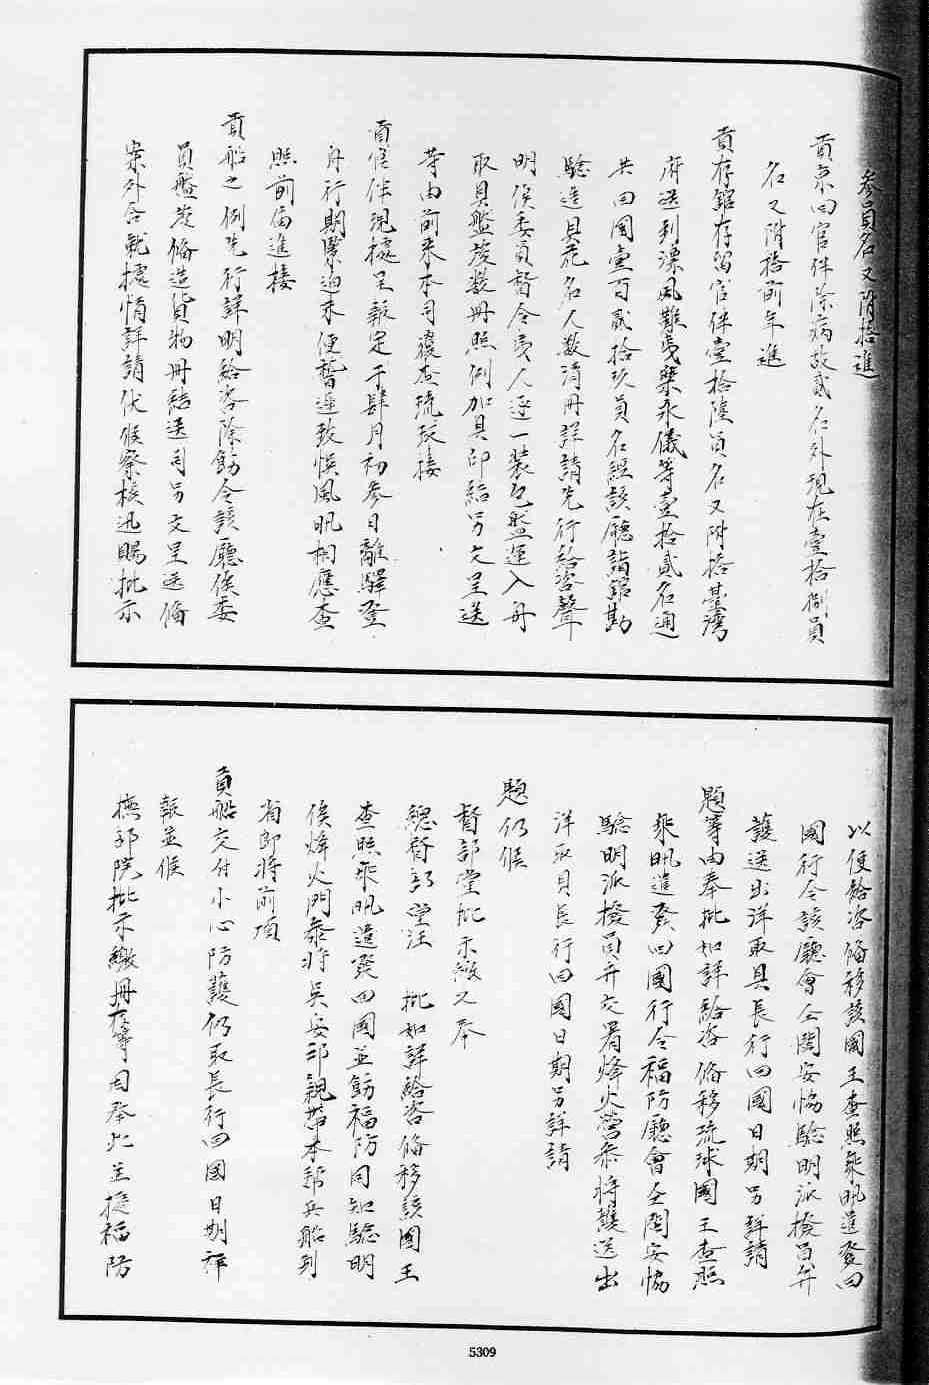 參員名又附搭進
貢京回官伴除病故貳名外現在壹拾捌員
名又附搭前年進
貢存館存留官伴壹拾陸員名又附搭臺灣
府送到漂風難夷樂永儀等壹拾貳名通
共回國壹百貳拾玖員名經該廳詣館勘
驗造具花名人數清冊詳請先行給咨聲
明俟委員督令夷人逐一裝包盤運入舟
取具盤驗數冊照例加具印結另文呈送
等由前來本司覆查琉球接
貢官伴現據呈報定于肆月初參日離驛登
舟行期緊迫未便暫遲致悞風帆相應查
照前屆進接
貢船之例先行詳明給咨除飭令該廳俟委
員盤驗備造貨物冊結送司另文呈送備
案外合就據情詳請伏候察核迅賜批示
以便給咨備移該國王查照乘帆進發回
國行令該廳會仝閩安協驗明派撥員弁
護送出洋取具長行回國日期另詳請
題等由奉批如詳給咨備移琉球國王查照
乘帆進發回國行令福防廳會仝閩安協
驗明派撥員弁交署烽火營參將護送出
洋取具長行回國日期另詳請
題仍候
督部堂批示繳又奉
總督部堂汪 批如詳給咨備移該國王
查照乘帆遣發回國並飭福防同知驗明
俟烽火門參將吳安邦親帶本部兵船到
省即將前項
貢船交付小心防護仍取長行回國日期詳
報並候
撫部院批示繳冊存等因奉此並據福防
5309